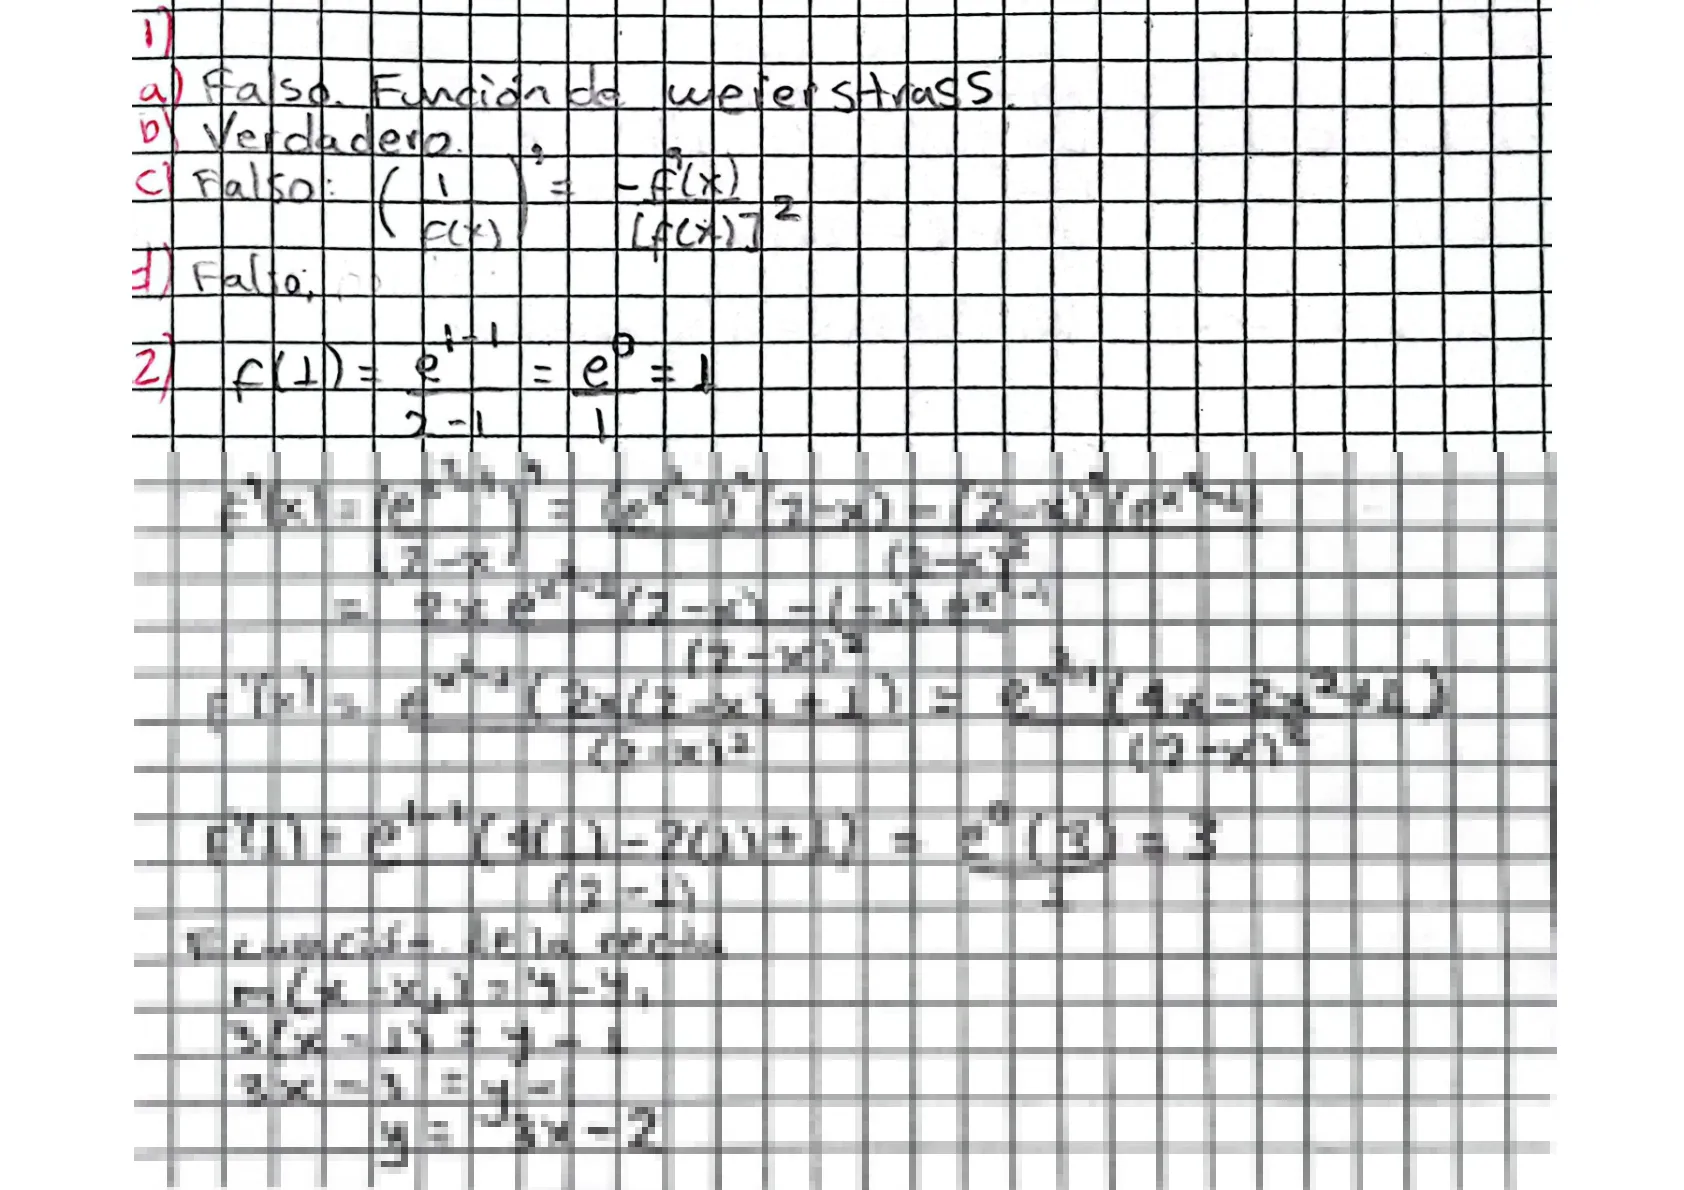 1)
a) Falso. Función de weierstrass.
b) Verdadero.
c) Falso: (1/f(x))' = -f'(x)/[f(x)]²
d) Falso.
2) f(1) = e^(1-1)/(2-1) = e^0/1 = 1
f'(x) = (e^(x²-1)/(2-x))' = ((e^(x²-1))'(2-x) - (2-x)'(e^(x²-1)))/(2-x)²
= (2x e^(x²-1)(2-x) - (-1) e^(x²-1))/(2-x)²
f'(x) = e^(x²-1)(2x(2-x)+1)/(2-x)² = e^(x²-1)(4x-2x²+1)/(2-x)²
f'(1) = e^(1-1)(4(1)-2(1)+1)/(2-1) = e^0(3)/1 = 3
Ecuación de la recta
m(x-x₁) = y-y₁
3(x-1) = y-1
3x-3 = y-1
y = 3x-2